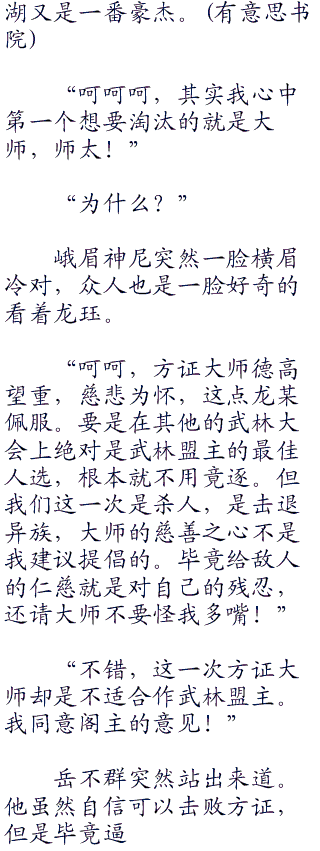 湖又是一番豪杰。(有意思书
院)
“呵呵呵，其实我心中
第一个想要淘汰的就是大
师，师太！”
“为什么？”
峨眉神尼突然一脸横眉
冷对，众人也是一脸好奇的
看着龙珏。
“呵呵，方证大师德高
望重，慈悲为怀，这点龙某
佩服。要是在其他的武林大
会上绝对是武林盟主的最佳
人选，根本就不用竟逐。但
我们这一次是杀人，是击退
异族，大师的慈善之心不是
我建议提倡的。毕竟给敌人
的仁慈就是对自己的残忍，
还请大师不要怪我多嘴！”
“不错，这一次方证大
师却是不适合作武林盟主。
我同意阁主的意见！”
岳不群突然站出来道。
他虽然自信可以击败方证，
但是毕竟逼